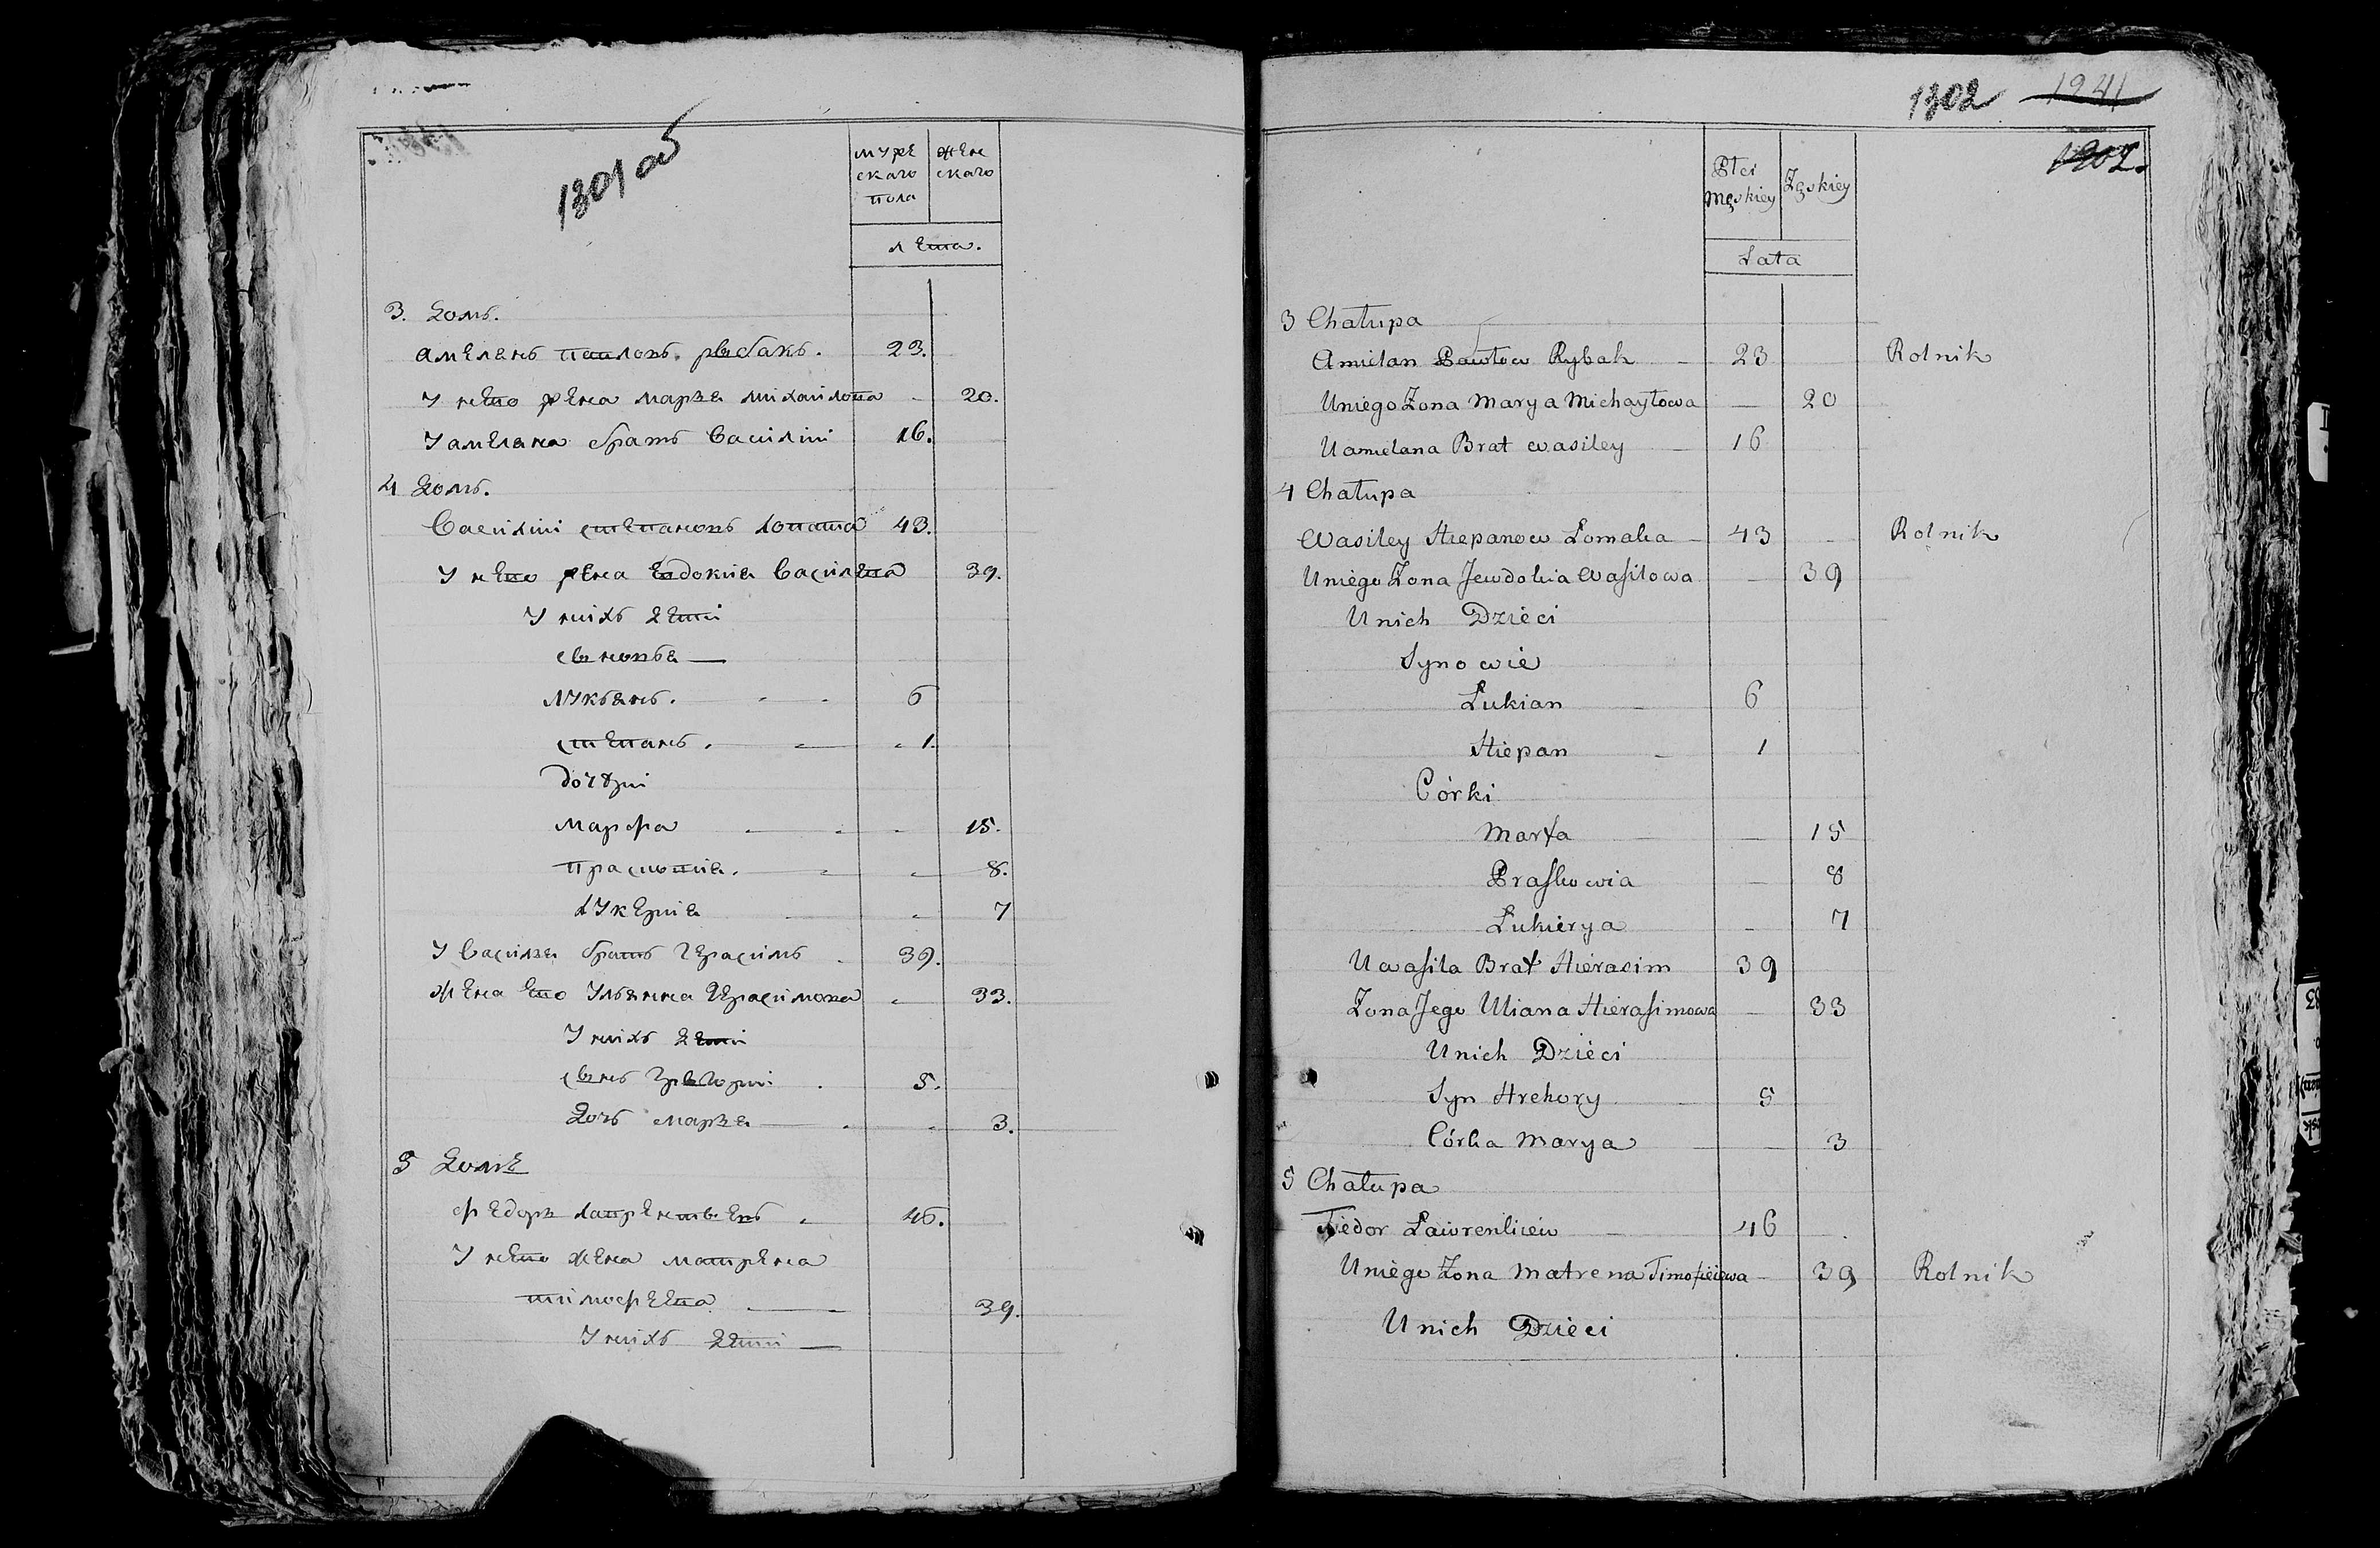 1301 об
мужескаго пола
женскаго
лета.
3. Домъ.
Амелянъ павловъ рыбакъ. 23.
У него жена марья михаилова - 20.
У амеляна братъ Василий 16.
4 Домъ.
Василий степановъ лопата 43.
У него жена Евдокия Василева 39.
У нихъ дети
сыновья —
лукьянъ. - - 6
степанъ. - - 1.
дочери
марфа - - - 15.
прасковия. - - 8.
лукерия - 7
У Василья братъ герасимъ - 39.
жена его Ульянна герасимова - 33.
У нихъ дети
сынъ григорий . 5.
Дочь марья — - - 3.
5 Доме
федоръ лаврентьевъ - 46.
У него жена матрена
тимофеева - - 39.
У нихъ дети —
1302 1241
1302.
Płci męskiey
Zęskiey
Lata
3 Chałupa
Amielan Pawłow Rybak - 23 Rolnik
Uniego Zona Marya Michayłowa — 20
Uamielana Brat wasiley - 16
4 Chałupa
Wasiley Stiepanow Łomaka - 43 - Rolnik
Uniego Zona Jewdokia Wasilowa - 39
Unich Dzieci
Synowie
Łukian - 6
Stiepan - 1
Córki
Marta — 15
Praskowia — 8
Łukierya - 7
Uwasila Brat Hierasim 39
Zona Jego Uliana Hierasimowa — 33
Unich Dzieci
Syn Hrehory - 5
Córka Marya — 3
5 Chałupa
Fiedor Ławrenticiew — 46 .
Uniego Zona Matrena Timofieiewa - 39 Rolnik
Unich Dzieci